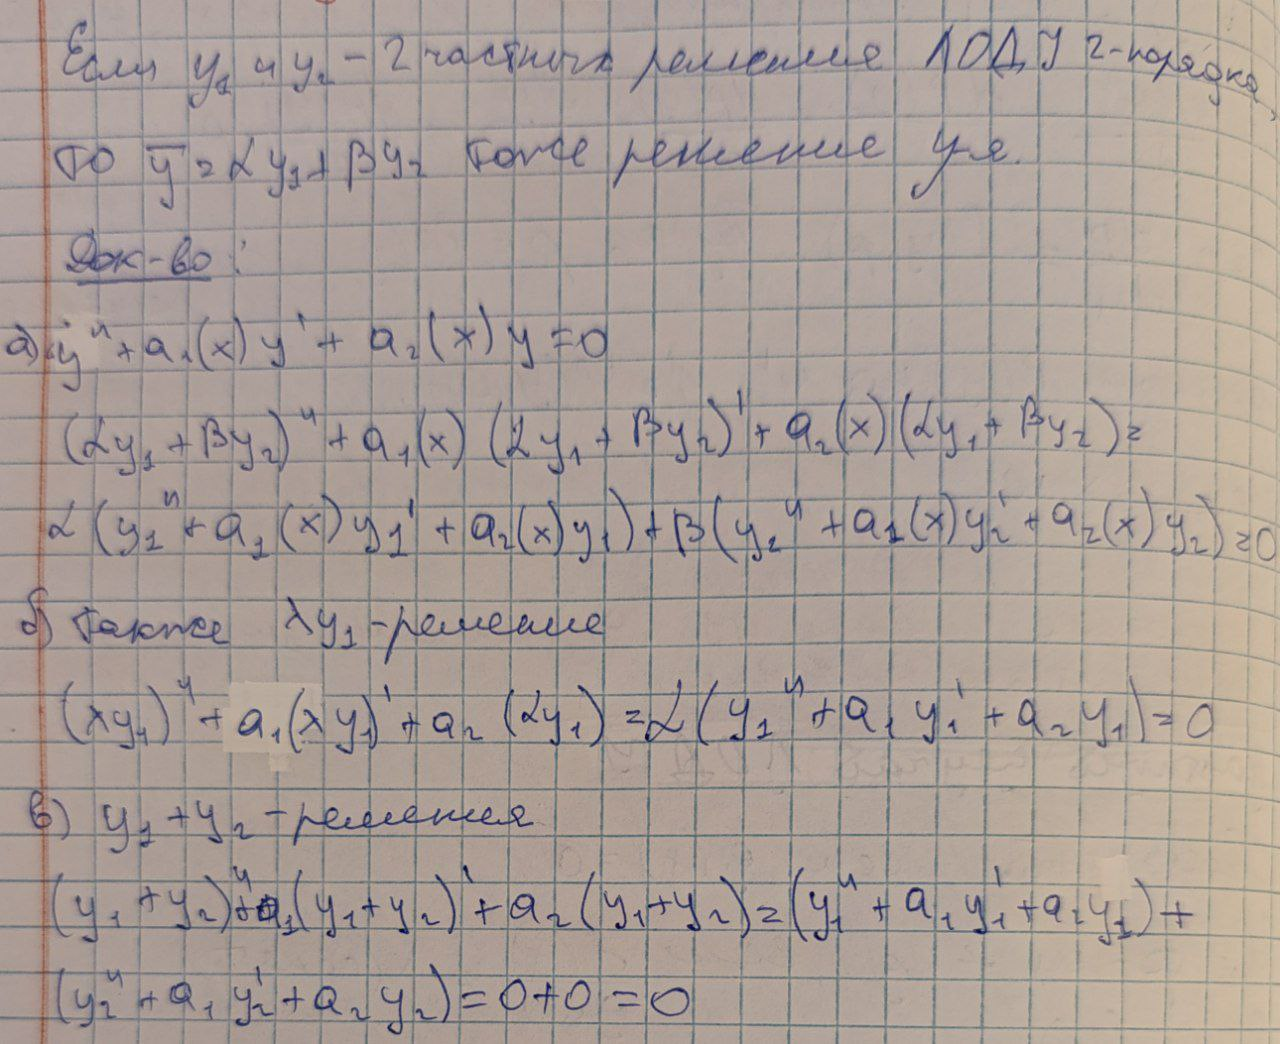 Если y₁ и y₂ - 2 частных решения ЛОДУ 2-порядка,
то ȳ = αy₁ + βy₂ тоже решение ур-я.
Док-во:
а) y'' + a₁(x) y' + a₂(x) y = 0
(αy₁ + βy₂)'' + a₁(x) (αy₁ + βy₂)' + a₂(x) (αy₁ + βy₂) =
α (y₁'' + a₁(x) y₁' + a₂(x) y₁) + β (y₂'' + a₁(x) y₂' + a₂(x) y₂) = 0
б) также λy₁ - решение
(λy₁)'' + a₁(λy₁)' + a₂ (αy₁) = α (y₁'' + a₁ y₁' + a₂ y₁) = 0
в) y₁ + y₂ - решения
(y₁ + y₂)'' + a₁(y₁ + y₂)' + a₂ (y₁ + y₂) = (y₁'' + a₁ y₁' + a₂ y₁) +
(y₂'' + a₁ y₂' + a₂ y₂) = 0 + 0 = 0